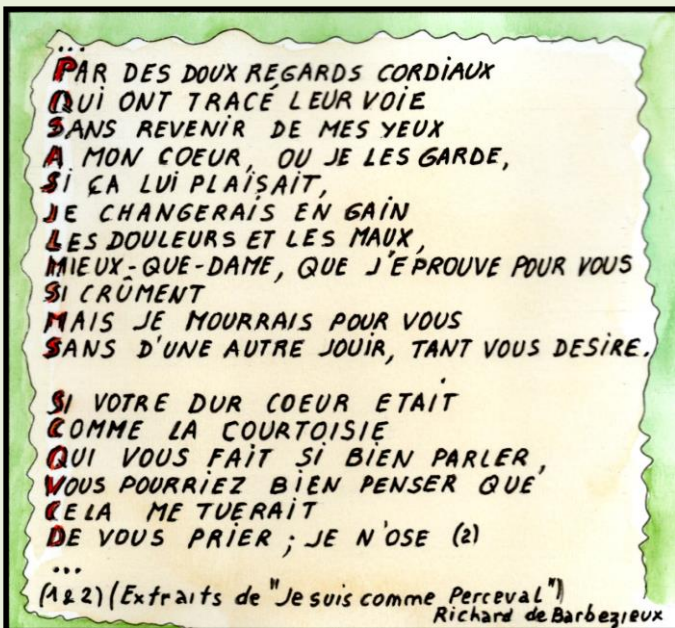 ...
PAR DES DOUX REGARDS CORDIAUX
QUI ONT TRACÉ LEUR VOIE
SANS REVENIR DE MES YEUX
A MON COEUR, OU JE LES GARDE,
SI ÇA LUI PLAISAIT,
JE CHANGERAIS EN GAIN
LES DOULEURS ET LES MAUX,
MIEUX-QUE-DAME, QUE J'EPROUVE POUR VOUS
SI CRÛMENT
MAIS JE MOURRAIS POUR VOUS
SANS D'UNE AUTRE JOUIR, TANT VOUS DESIRE.
SI VOTRE DUR COEUR ETAIT
COMME LA COURTOISIE
QUI VOUS FAIT SI BIEN PARLER,
VOUS POURRIEZ BIEN PENSER QUE
CELA ME TUERAIT
DE VOUS PRIER ; JE N'OSE (2)
...
(1&2) (Extraits de "Je suis comme Perceval")
Richard de Barbezieux